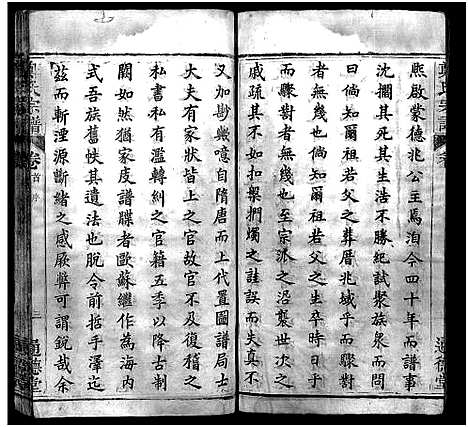 熈啟蒙德兆公主焉洎今四十年而譜事
沈擱其死生浩不勝紀試聚族眾而問
曰倘知爾祖若父之葬厝兆域乎而驟對
者無幾也倘知爾祖若父之生卒時日乎
而驟對者無幾也至宗派之沿襲世次之
戚疏其不如扣槃捫燭之詿誤而失真不
又加尠歟噫自隋唐而上代置圖譜局士
大夫有家狀皆上之官故官不及復稽之
私書私有濫轉糾之官籍五季以降古制
闕如然猶家皮譜牒者歐蘇繼作為海內
式吾族舊帙其遺法也脫令前哲手澤迄
茲而斬湮源斷緒之感厥弊可謂銳哉余
氏宗譜
卷
首
序
三
通德堂
通德堂